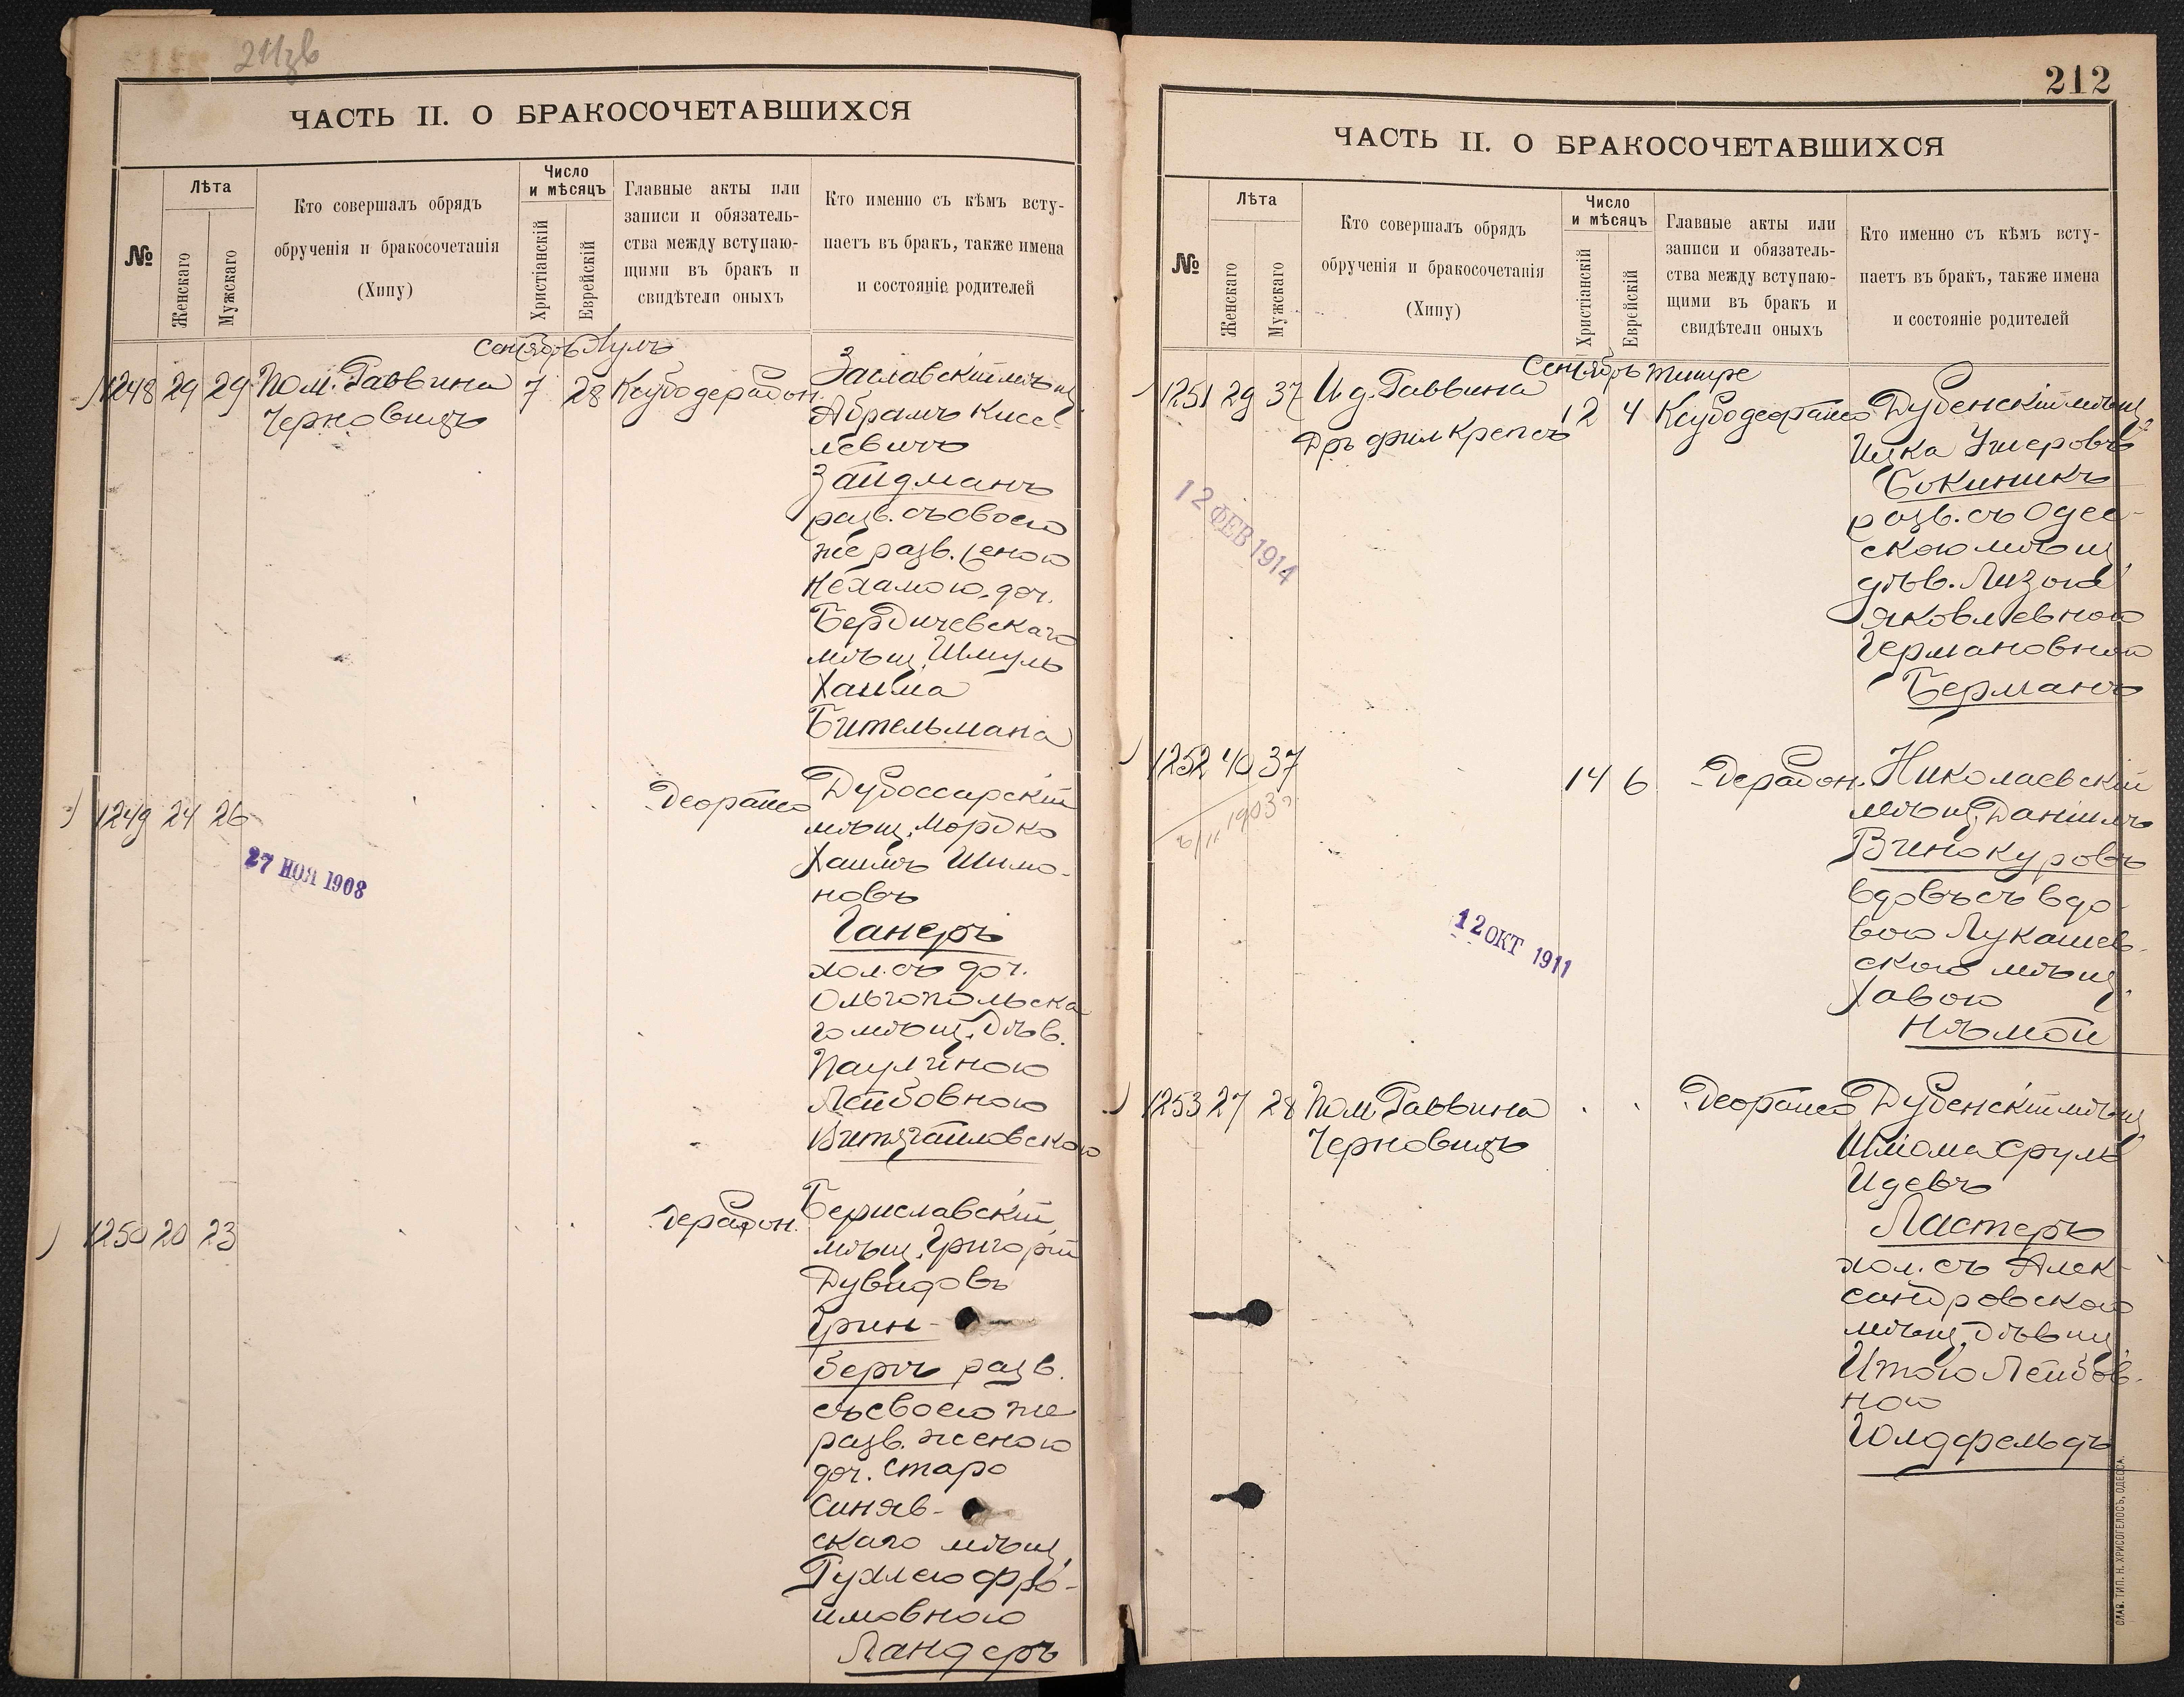 21138
ЧАСТЬ II. О БРАКОСОЧЕТАВШИХСЯ
№
Лѣта
Женскаго
Мужскаго
Кто совершалъ обрядъ
обрученія и бракосочетанія
(Хипу)
Число
и мѣсяцъ
Христіанскій
Еврейскій
Главные акты или
записи и обязатель-
ства между вступаю-
щими въ бракъ и
свидѣтели оныхъ
Кто именно съ кѣмъ всту-
паетъ въ бракъ, также имена
и состояніе родителей
Сентябрь Лулъ
1248 29 29 Пом. Раввина 7 28 Ксубо дерабон.
Черновицъ
Заславскій мѣщ.
Абрамъ Кисе-
левичъ
Зайдманъ
разв. съ своею
же разв. женою
Нехамою, доч.
Бердичевскаго
мѣщ. Шмуль
Хаима
Бительмана
1249 24 26 . . Деорайсо
27 НОЯ 1908
Дубоссарскій
мѣщ. Мордко
Хаимъ Шимо-
новъ
Ганеръ
хол. съ доч.
Ольгопольска
го мѣщ. дѣв.
Паулиною
Лейбовною
1250 20 23 . . дерабон.
Бериславскій
мѣщ. Григорій
Дувидовъ
Грин-
бергъ разв.
съ своею же
разв. женою
доч. Старо
Синяв-
скаго мѣщ.
Рухлею Фро-
имовною
Ландеръ
212
ЧАСТЬ II. О БРАКОСОЧЕТАВШИХСЯ
№
Лѣта
Женскаго
Мужскаго
Кто совершалъ обрядъ
обрученія и бракосочетанія
(Хипу)
Число
и мѣсяцъ
Христіанскій
Еврейскій
Главные акты или
записи и обязатель-
ства между вступаю-
щими въ бракъ и
свидѣтели оныхъ
Кто именно съ кѣмъ всту-
паетъ въ бракъ, также имена
и состояніе родителей
Сентябрь Тишре
1251 29 37 И. д. Раввина 12 4 Ксубо деорайсо
Дръ фил. Крепсъ
12 ФЕВ 1914
Дубенскій мѣщ.
Ицка Ушеровъ
Бокиникъ
разв. съ Одес-
скою мѣщ.
дѣв. Лизою
Яковлевною
Германовною
Берманъ
1252 40 37 14 6 Дерабон.
6/11 1903
12 ОКТ 1911
Николаевскій
мѣщ. Даніилъ
Винокуровъ
вдовъ съ вдо-
вою Лукашев-
скою мѣщ.
Хавою
Нѣмой
1253 27 28 Пом. Раввина . . Деорайсо
Черновицъ
Дубенскій мѣщ.
Шліома Сруль
Идевъ
Ластеръ
хол. съ Алек-
сандровскою
мѣщ. дѣвиц.
Итою Лейбов-
ною
Голдфельдъ
СЛАВ. ТИП. Н. ХРИСОГЕЛОСЪ, ОДЕССА.